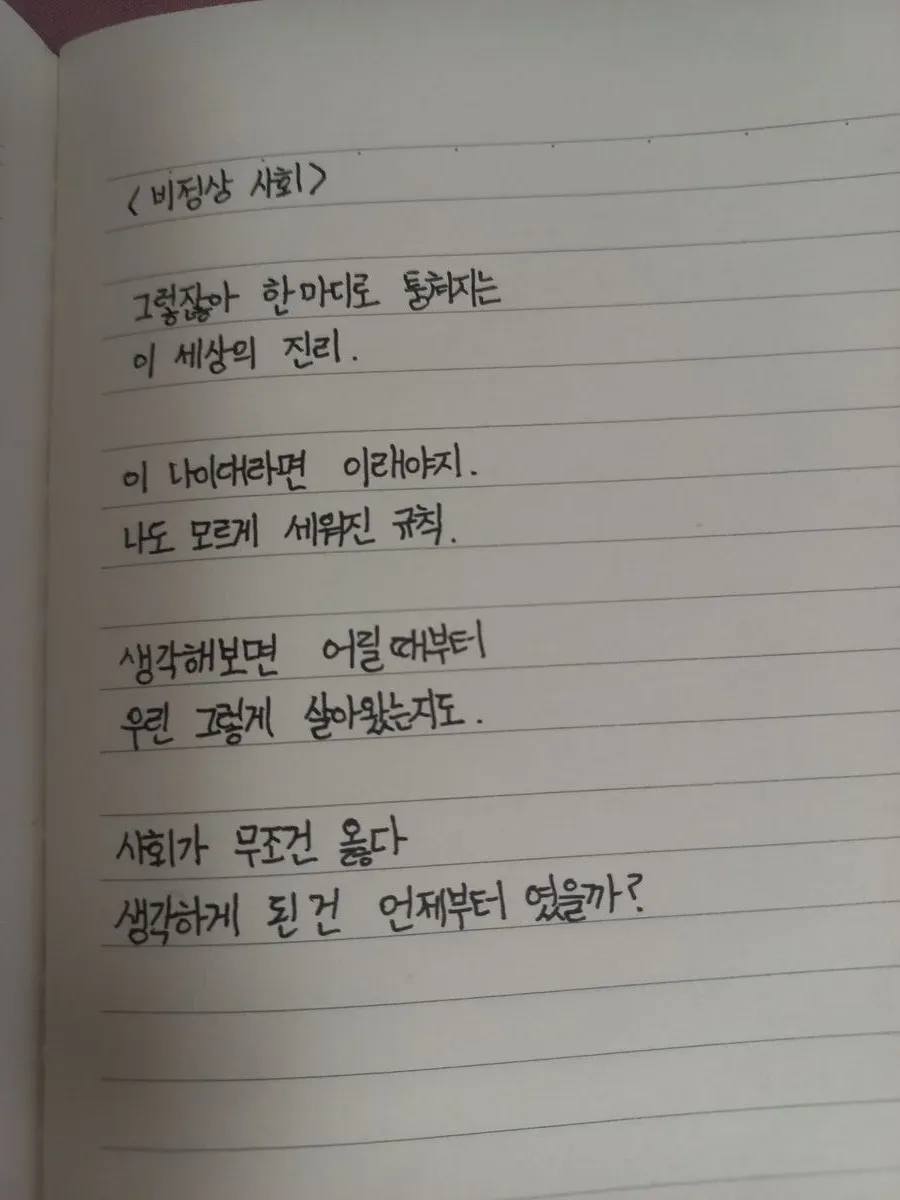 <비정상 사회>
그렇잖아 한마디로 퉁쳐지는
이 세상의 진리.
이 나이대라면 이래야지.
나도 모르게 세워진 규칙.
생각해보면 어릴때부터
우린 그렇게 살아왔는지도.
사회가 무조건 옳다
생각하게 된건 언제부터 였을까?